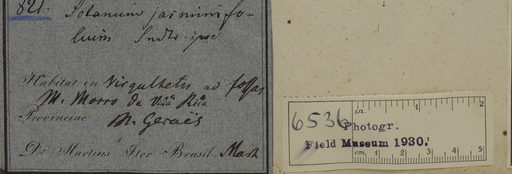 821. Solanum jasminifo-
lium Sndtr. ipse
Habitat in Virgulhetis ad fossas
M. Morro de Villa Ricca
Provinciae M. Geraës
De Martius Iter Brasil. Mart
6536
Photogr.
Field Museum 1930.
in. 1 2
cm. 1 2 3 4 5